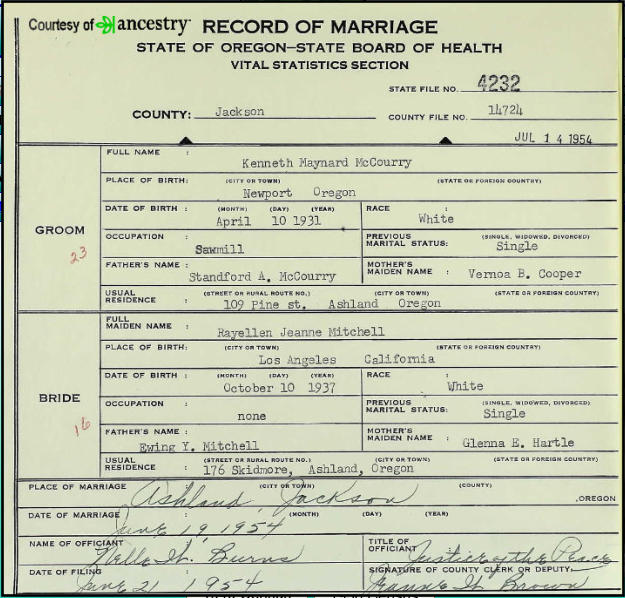 Courtesy of ancestry RECORD OF MARRIAGE
STATE OF OREGON—STATE BOARD OF HEALTH
VITAL STATISTICS SECTION
STATE FILE NO. 4232
COUNTY: Jackson COUNTY FILE NO. 14724
JUL 14 1954
GROOM
23
FULL NAME : Kenneth Maynard McCourry
PLACE OF BIRTH: (CITY OR TOWN) (STATE OR FOREIGN COUNTRY)
Newport Oregon
DATE OF BIRTH : (MONTH) (DAY) (YEAR) RACE :
April 10 1931 White
OCCUPATION : Sawmill PREVIOUS MARITAL STATUS: (SINGLE, WIDOWED, DIVORCED) Single
FATHER'S NAME : Standford A. McCourry MOTHER'S MAIDEN NAME : Vernoa B. Cooper
USUAL RESIDENCE : (STREET OR RURAL ROUTE NO.) (CITY OR TOWN) (STATE OR FOREIGN COUNTRY)
109 Pine st. Ashland Oregon
BRIDE
16
FULL MAIDEN NAME : Rayellen Jeanne Mitchell
PLACE OF BIRTH: (CITY OR TOWN) (STATE OR FOREIGN COUNTRY)
Los Angeles California
DATE OF BIRTH : (MONTH) (DAY) (YEAR) RACE :
October 10 1937 White
OCCUPATION : none PREVIOUS MARITAL STATUS: (SINGLE, WIDOWED, DIVORCED) Single
FATHER'S NAME : Ewing Y. Mitchell MOTHER'S MAIDEN NAME : Glenna E. Hartle
USUAL RESIDENCE : (STREET OR RURAL ROUTE NO.) (CITY OR TOWN) (STATE OR FOREIGN COUNTRY)
176 Skidmore, Ashland, Oregon
PLACE OF MARRIAGE (CITY OR TOWN) (COUNTY)
Ashland, Jackson , OREGON
DATE OF MARRIAGE (MONTH) (DAY) (YEAR)
June 19, 1954
NAME OF OFFICIANT TITLE OF OFFICIANT
Burns Justice of the Peace
DATE OF FILING SIGNATURE OF COUNTY CLERK OR DEPUTY:
June 21 1954 Brown